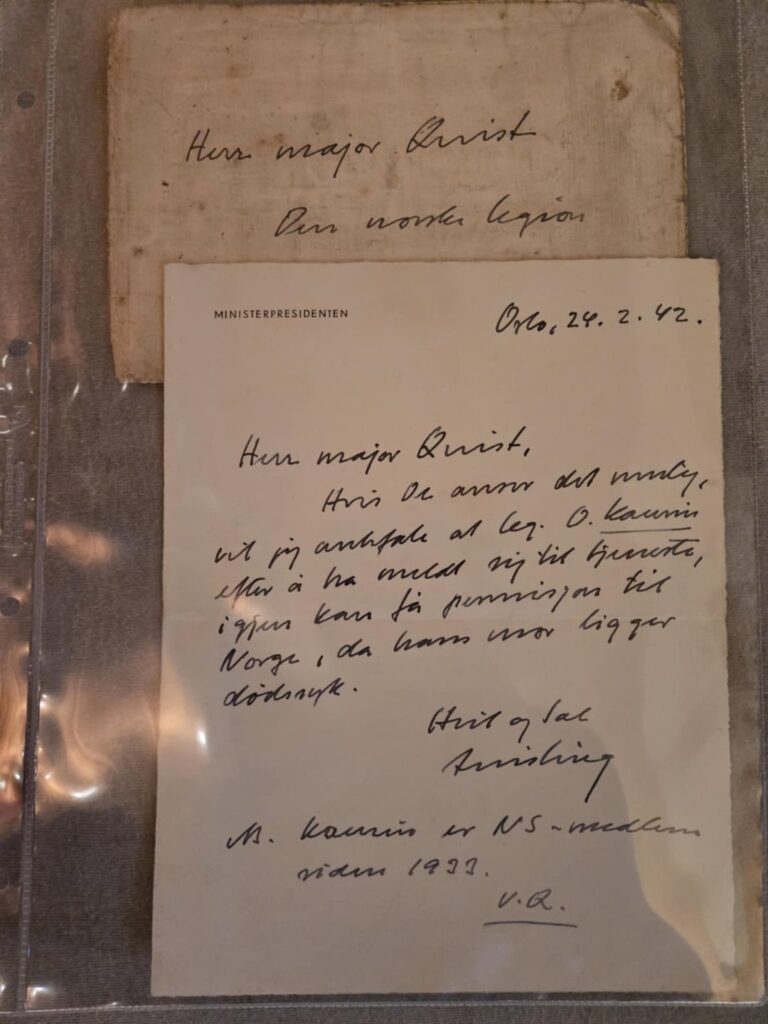 Herr major Qvist
Den norske legion
MINISTERPRESIDENTEN
Oslo, 24. 2. 42.
Herr major Qvist,
Hvis De anser det mulig,
vil jeg anbefale at leg. O. Kaurin
efter å ha meldt sig til tjeneste,
igjen kan få permisjon til
Norge, da hans mor ligger
dødssyk.
Heil og Sæl
Quisling
NB. Kaurin er NS-medlem
siden 1933.
V.Q.